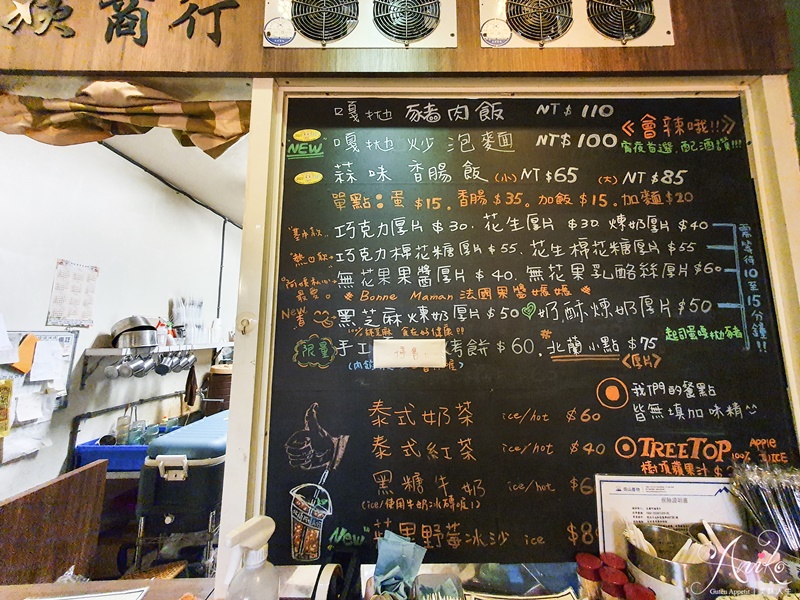 商行
嘎抛 豬肉飯 NT$110
《會辣哦!!》
NEW 嘎抛 炒泡麵 NT$100
宵夜首選.配酒讚!!!
蒜味 香腸飯 (小)NT$65 (大)NT$85
單點：蛋$15、香腸$35。加飯$15、加麵$20
巧克力厚片$30、花生厚片$30、煉奶厚片$40
巧克力棉花糖厚片$55、花生棉花糖厚片$55
無花果果醬厚片$40、無花果乳酪絲厚片$60
需等待10至15分鐘!!
最愛。《Bonne Maman 法國果醬媽媽》
New 黑芝麻煉奶厚片$50 奶酥煉奶厚片$50
限量 手工 烤餅$60.
北蘭小點 $75
<厚片>
我們的餐點
皆無填加味精
泰式奶茶 ice/hot $60
泰式紅茶 ice/hot $40
TREETOP Apple 100% JUICE
樹頂蘋果汁
黑糖牛奶 ice/hot
(ice/使用牛奶冰磚喔!)
New 蘋果野莓冰沙 ice
Aniko
Guten Appetit